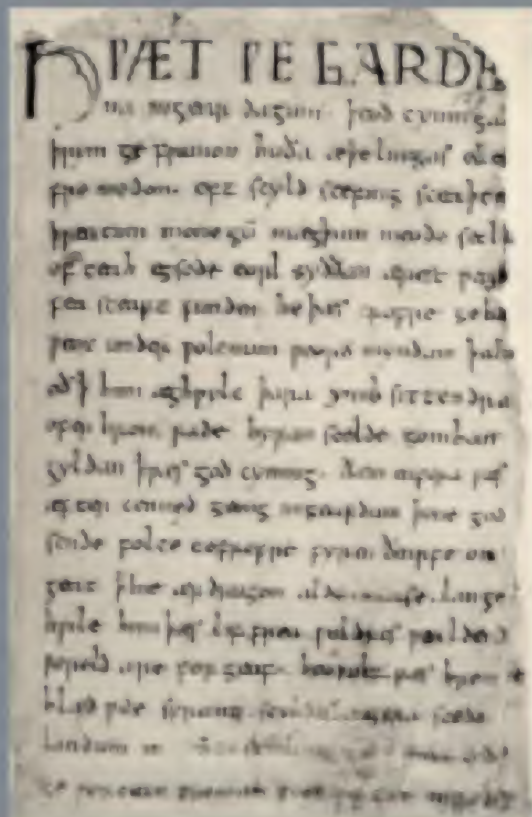 HǷÆT ǷE GARDE
na ingear dagum. þeod cyninga
þrym ge frunon huða æþelingas elle
fremedon. oft scyld scefing sceaþen
þreatum monegū mægþum meodo setla
of teah egsode eorl syððan ærest ƿear
fea sceaft funden he þæs frofre geba
ƿeox under ƿolcnum ƿeorð myndum þah
oð ꝥ him æghƿylc þara ymb sittendra
ofer hron rade hyran scolde gomban
gyldan ꝥ ƿæs god cyning. ðæm eafera ƿæs
æfter cenned geong ingeardum þone god
sende folce tofrofre fyren ðearfe on
geat ꝥ hie ær drugon aldor ase. lange
hƿile him þæs lif frea ƿuldres ƿealdend
ƿorold are for geaf. beoƿulf ƿæs breme
blæd ƿide sprang scyldes eafera scede
landum in
ge ƿyrcean fromum feoh giftum